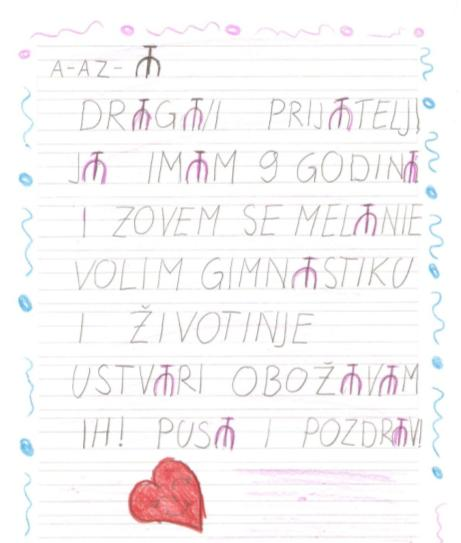 A-AZ-Ⰰ
DRⰀGⰀ/I PRIJⰀTELJI
JⰀ IMⰀM 9 GODINⰀ
I ZOVEM SE MELⰀNIE
VOLIM GIMNⰀSTIKU
I ŽIVOTINJE
USTVⰀRI OBOŽⰀVⰀM
IH! PUSⰀ I POZDRⰀV!